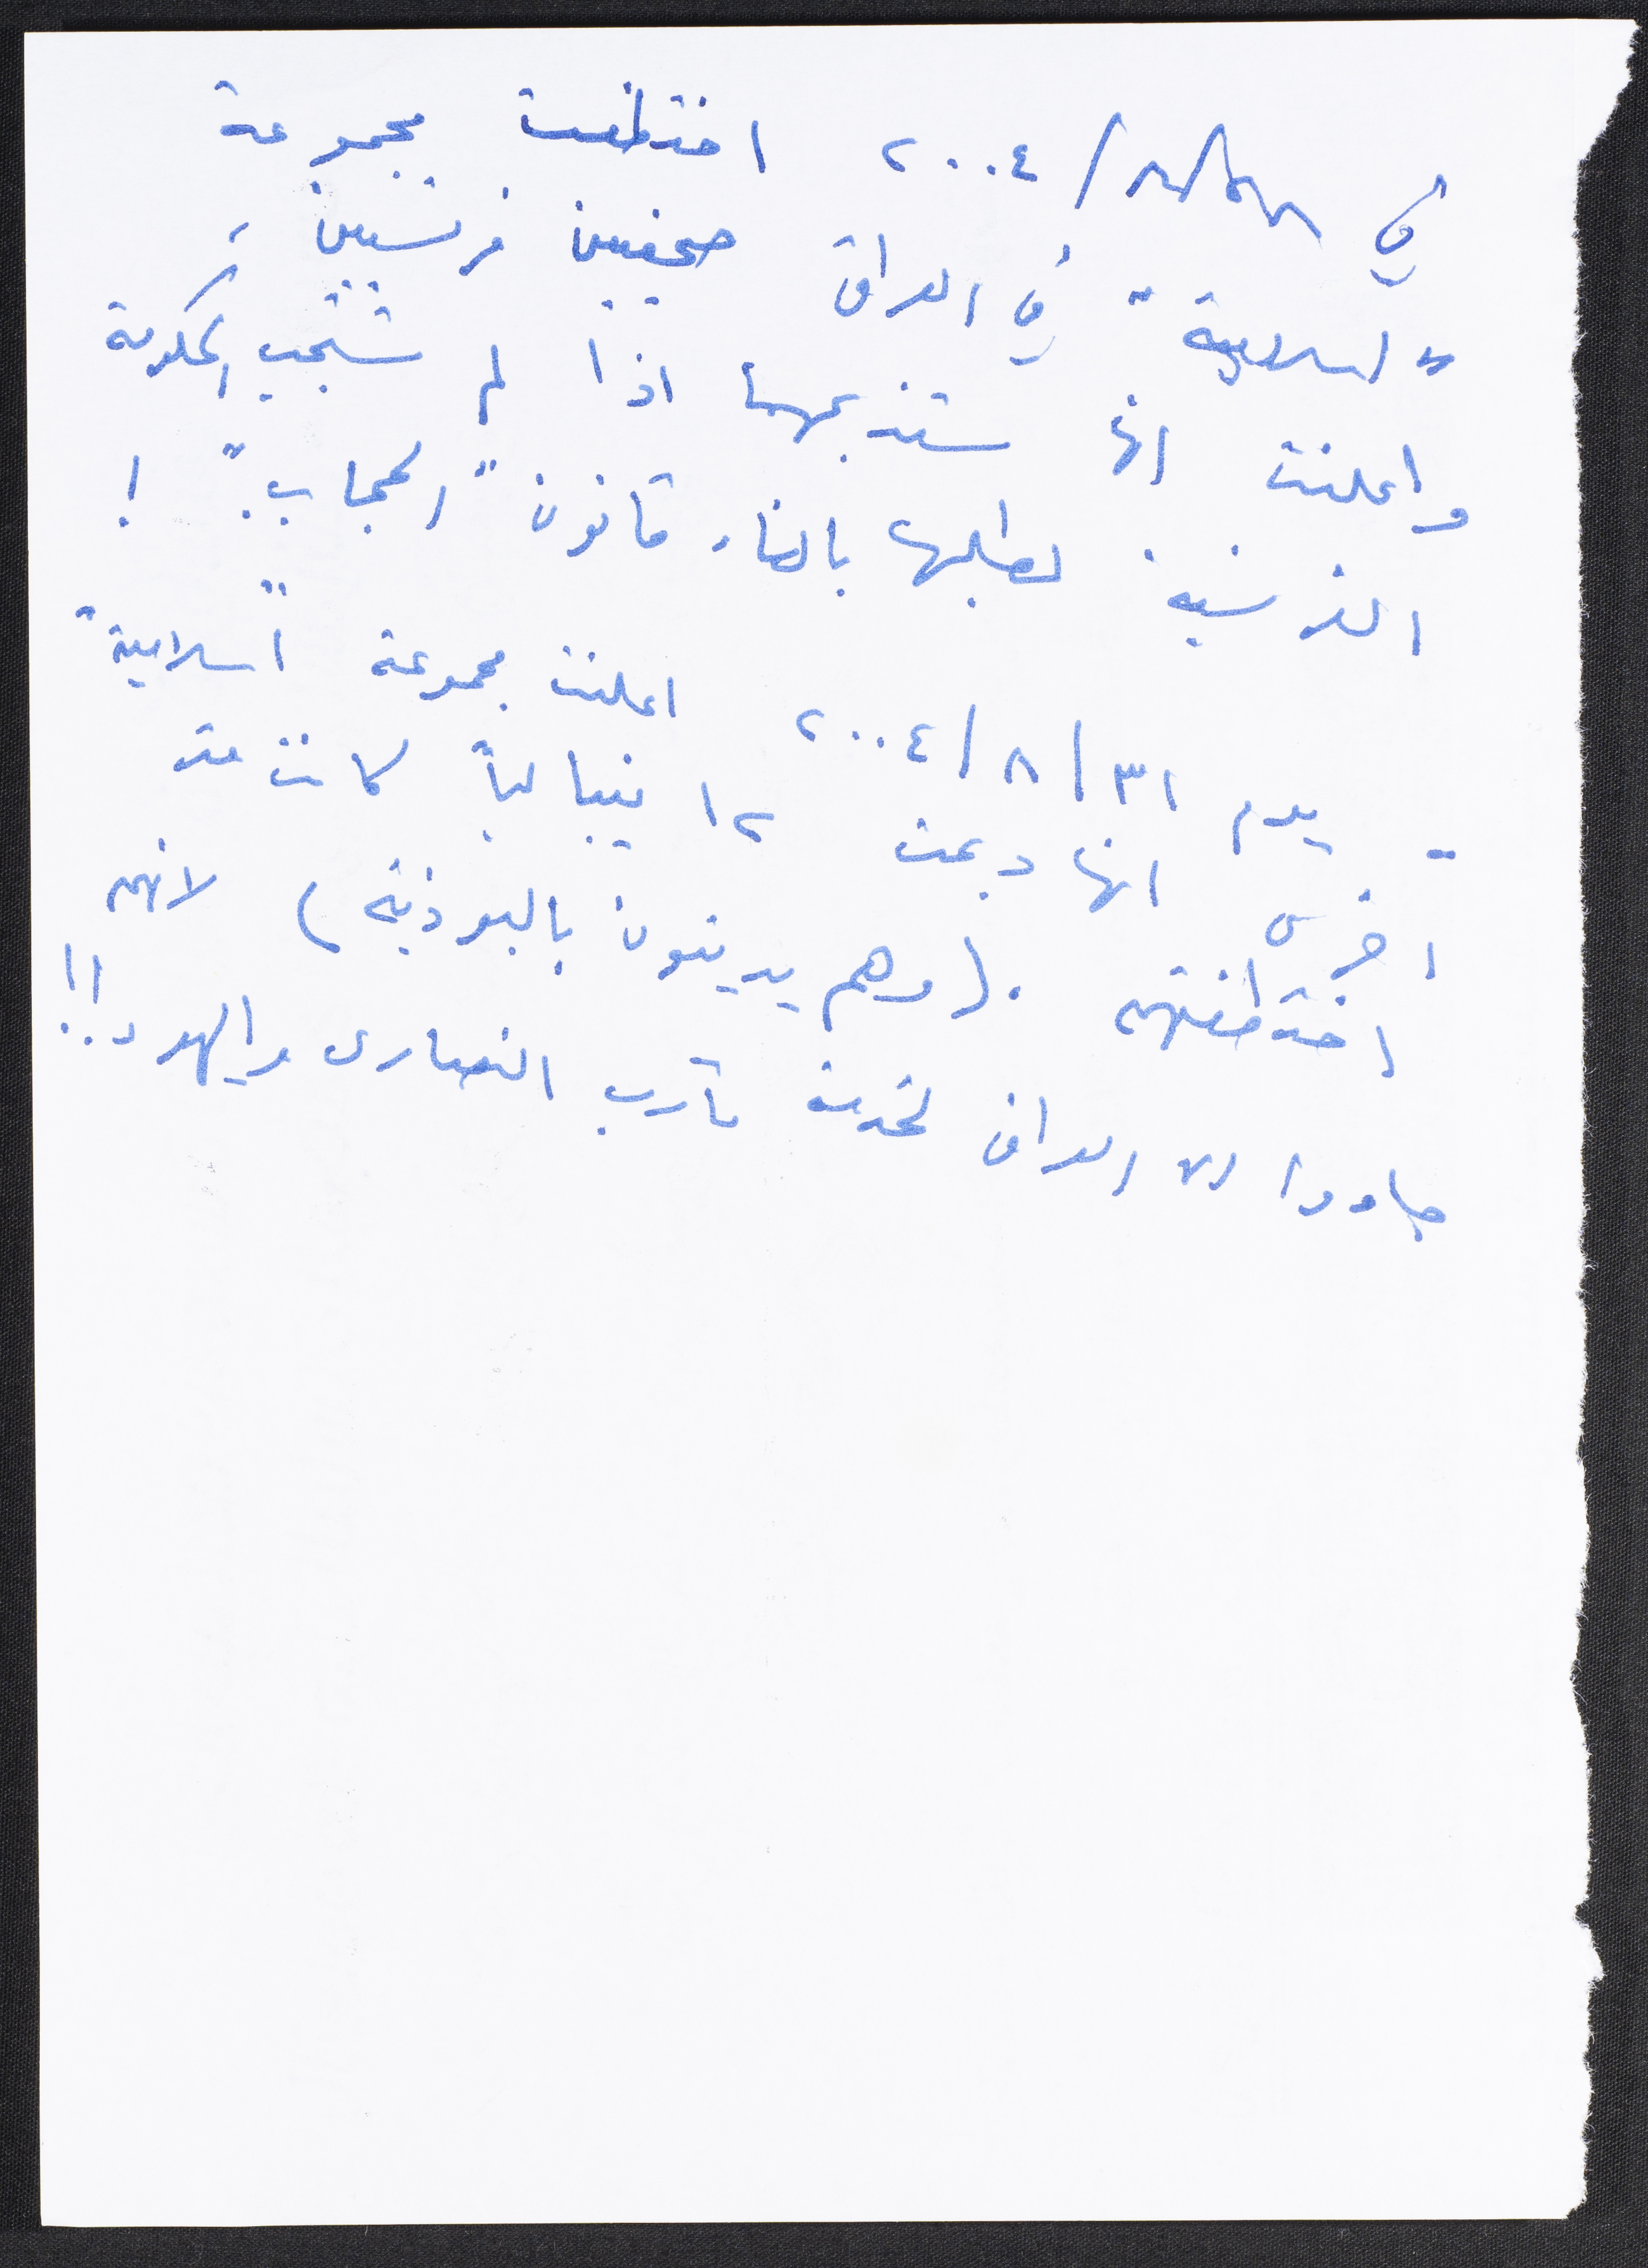 في ٢٨/٨/٢٠٠٤ اختطفت مجموعة
"اسلامية" في العراق صحفيين فرنسيين،
واعلنت انها ستذبحهما اذا لم تستجب الحكومة
الفرنسية لطلبها بالغاء قانون "الحجاب" !
- يوم ٣١/٨/٢٠٠٤ اعلنت مجموعة "اسلامية"
اخرى انها ذبحت ١٢ نيباليا كانت قد
اختطفتهم . (وهم يدينون بالبوذية) لانهم
جاءوا الى العراق لخدمة مآرب النصارى واليهود!!